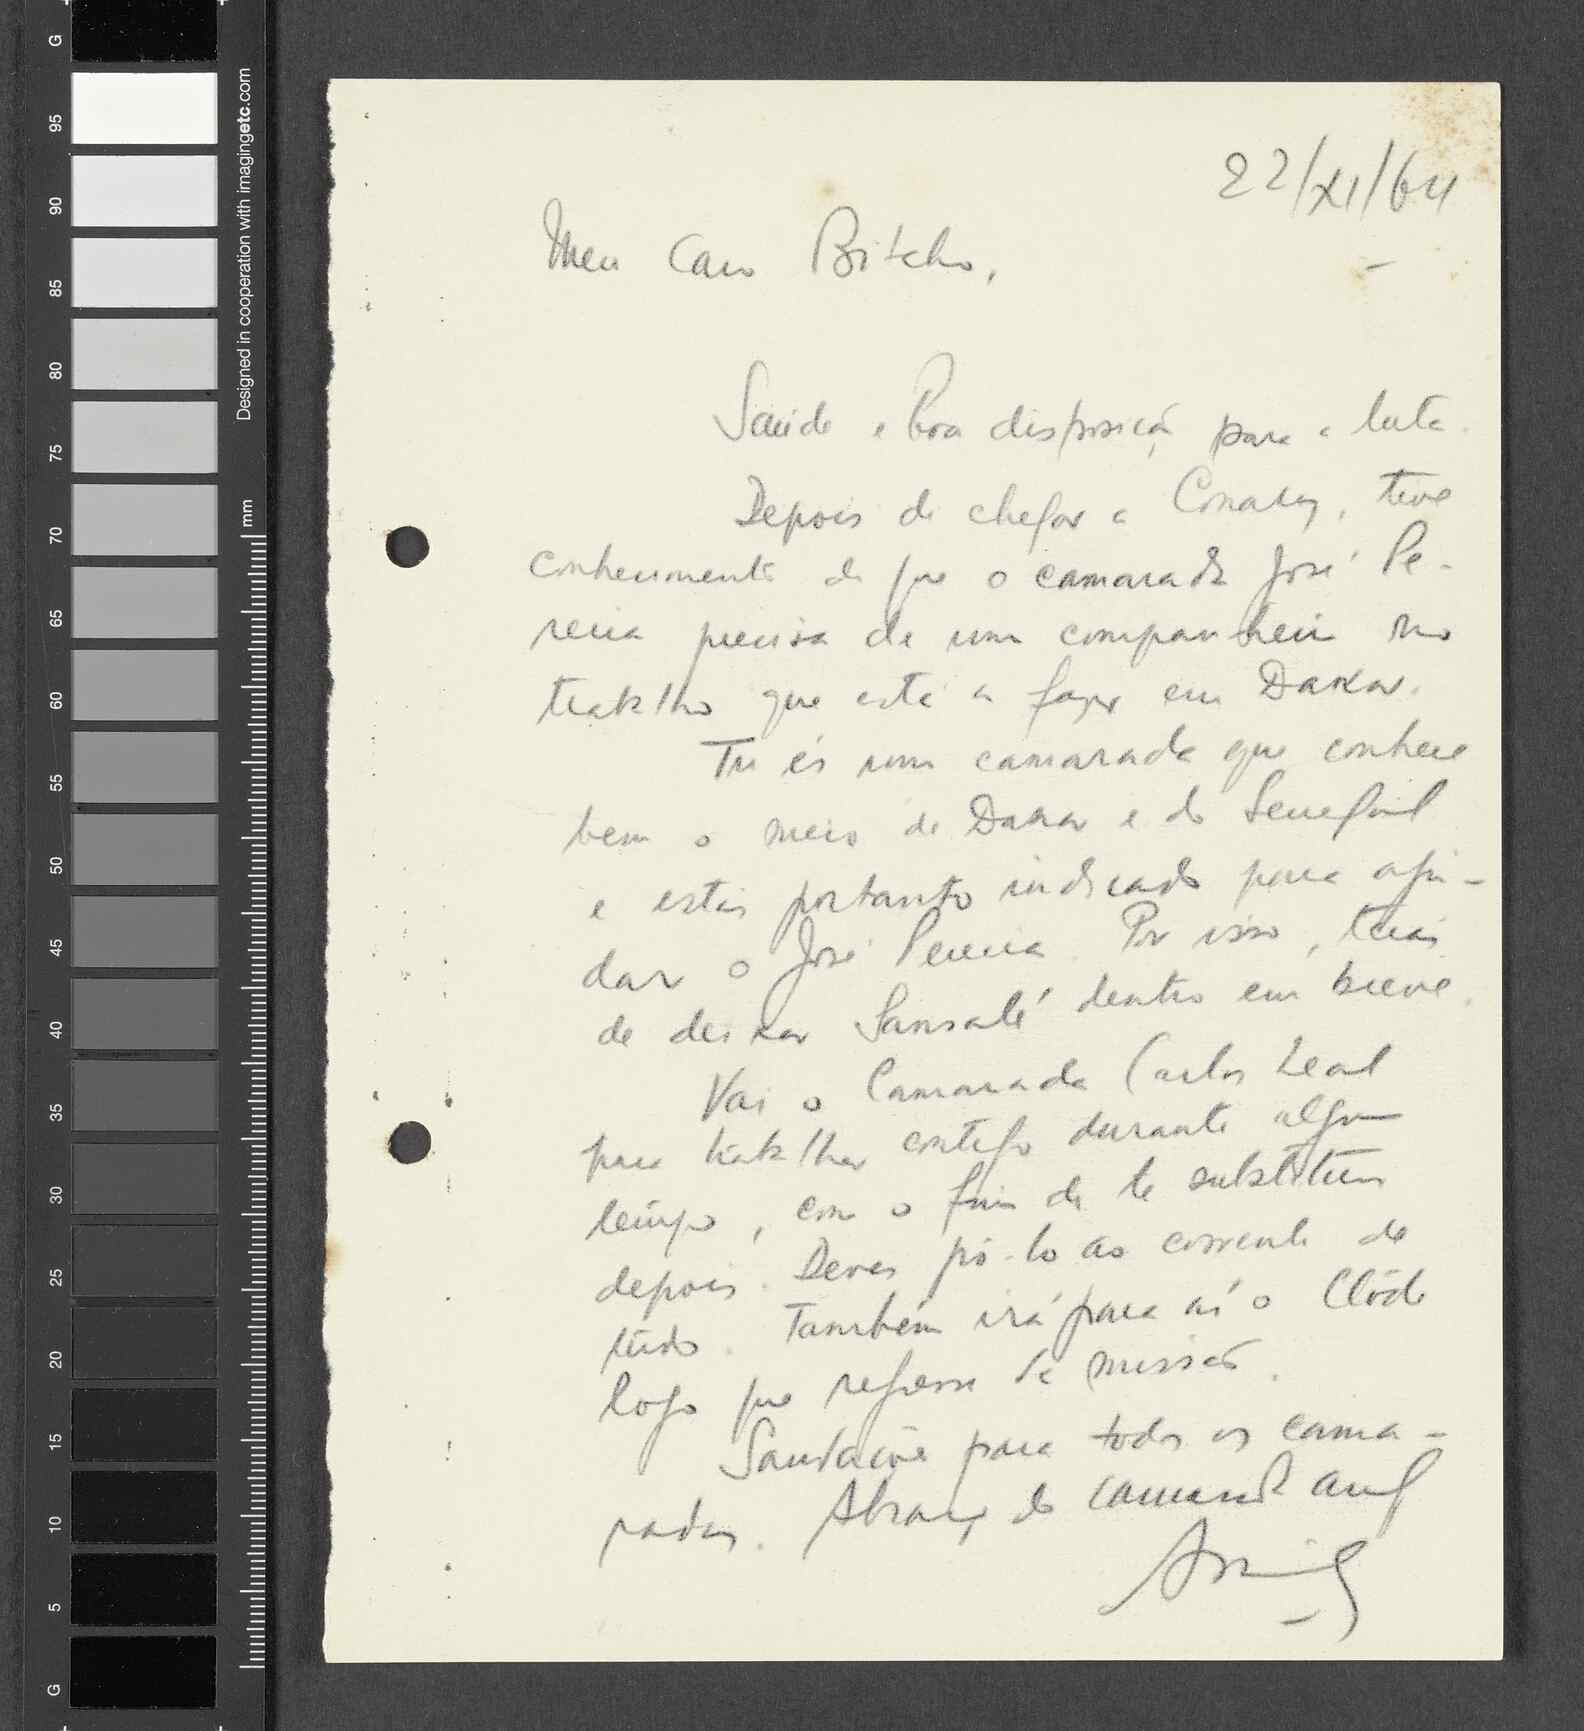 22/XI/64
Meu caro Bitcho,
Saúde e boa disposição para a luta.
Depois de chegar a Conakry, tive
conhecimento de que o camarada José Pe-
reira precisa de um companheiro no
trabalho que está a fazer em Dakar.
Tu és um camarada que conhece
bem o meio de Dakar e do Senegal
e estás portanto indicado para aju-
dar o José Pereira. Por isso, terás
de deixar Sansalé dentro em breve.
Vai o Camarada Carlos Leal
para trabalhar contigo durante algum
tempo, com o fim de te substituir
depois. Deves pô-lo ao corrente de
tudo. Também irá para aí o Clóde
logo que regresse da missão.
Saudações para todos os cama-
radas. Abraço do camarada amigo
G
95
90
85
80
75
70
65
60
55
50
45
40
35
30
25
20
15
10
5
G
Designed in cooperation with imagingetc.com
mm